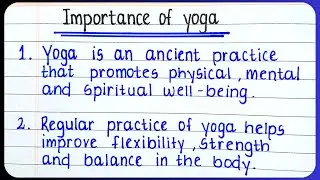 Importance of yoga
1. Yoga is an ancient practice
that promotes physical, mental
and spiritual well-being.
2. Regular practice of yoga helps
improve flexibility, strength
and balance in the body.